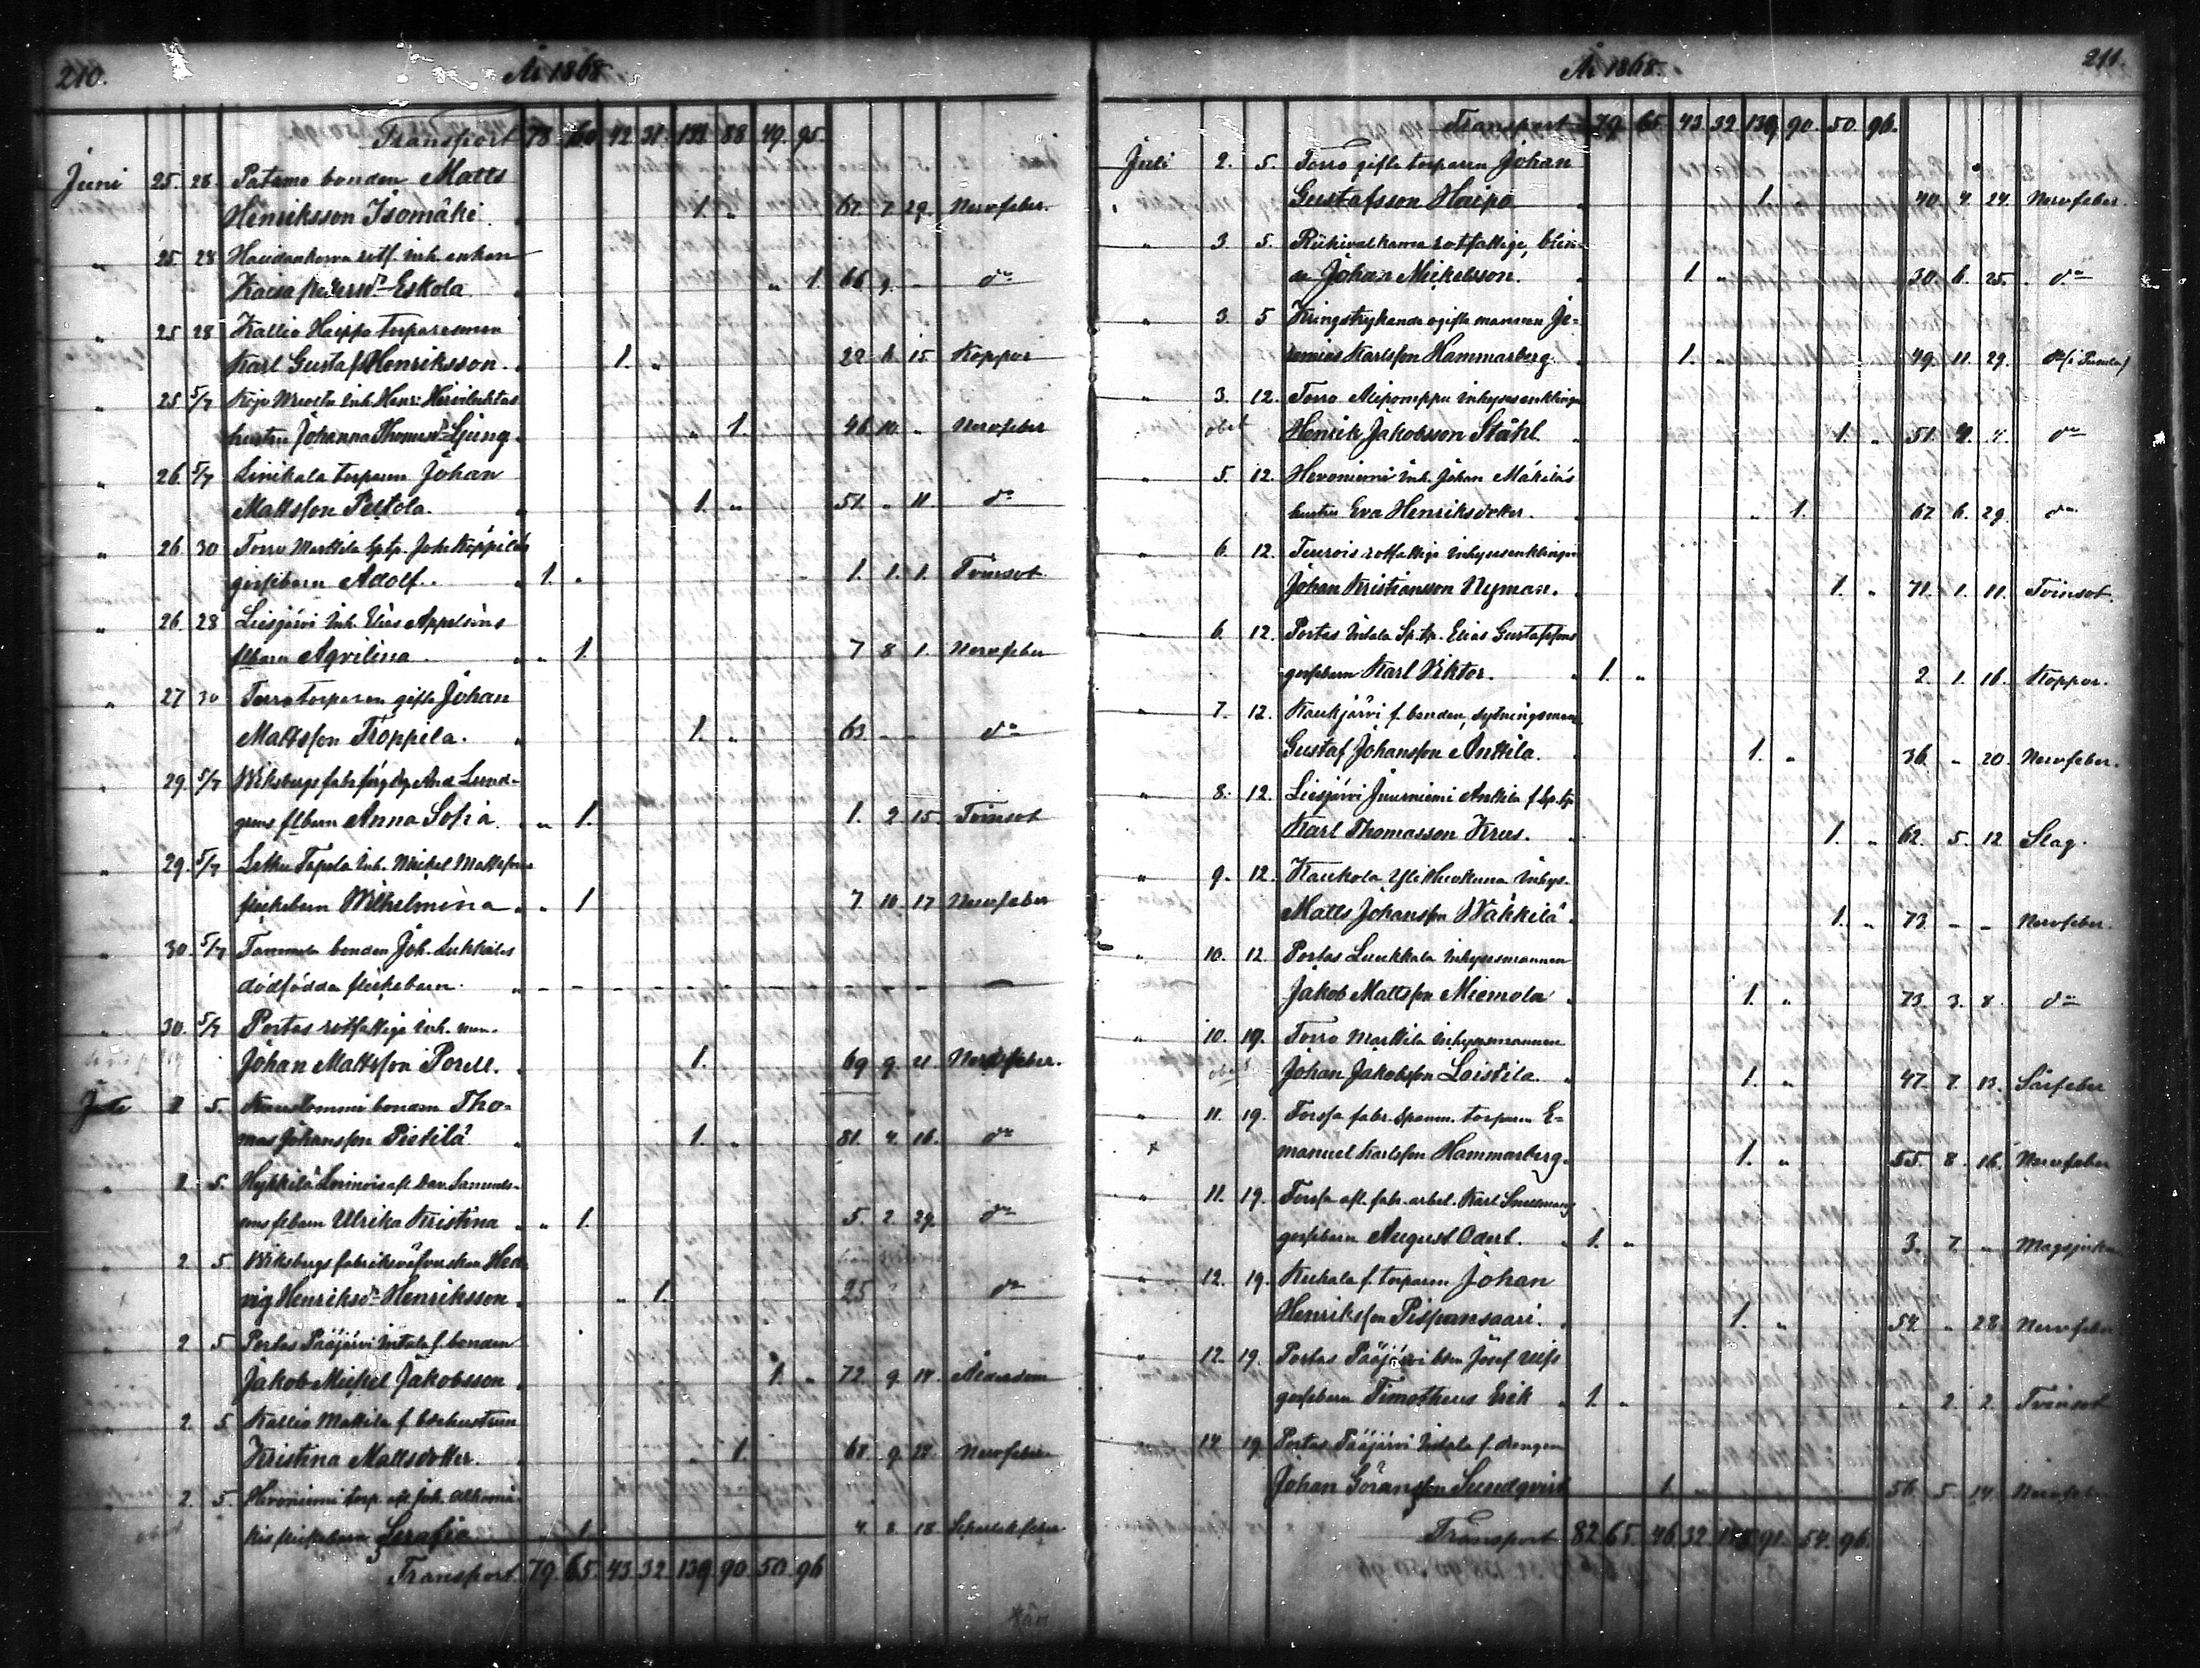 210.
År 1868.
Transport 78. 60 42 31. 133 88 49. 95.
Juni 25. 28 Patamo bonden Matts
Henriksson Isomäki 1. " 67. 7. 29. Nervfeber.
" 25. 28 Haudankorva rotf. inh. enkan
Kaisa Eskola " 1 66 9. - do
" 25 28 Kallio Haippa torparesonen
Karl Gustaf Henriksson. 1. " 22. 6. 15. Koppor
" 25 5/7 Kojo inh. Henr: Hirvilahtas
hustru Johanna Thomasdr Ljung " 1. 46. 10. " Nervfeber
" 26. 5/7 Linikala torparen Johan
Mattsson Peltola. 1. " 51. " 11. do
" 26. 30 Torro Marttila sptp. Joh. Köppiläs
gossebarn Adolf. 1. " 1. 1. 1. Tvinsot
" 26. 28 Liesjärvi inh. Elias Appelsins
flbarn Aqvilina " 1. 7 8 1. Nervfeber
" 27 30 Torro torparen gifte Johan
Mattsson Tröppela. 1. " 63. - - do
" 29. 5/7 Wiksbergs fabr. And. Lund-
grens flbarn Anna Sofia " 1. 1. 2 15. Tvinsot
" 29. 5/7 Letku Tapola inh. Mickel Mattssons
flickebarn Wilhelmina " 1 7 10. 17 Nervfeber
" 30. 5/7 Tammela bonden Joh. Lukkalas
dödfödda flickebarn.
" 30. 5/7 Portas rotfattige inh. man.
Johan Mattsson Porell. 1. 69 9. 21. Nervfeber.
Juli 1 5. Kauslommi bonden Tho-
mas Johansson Pietilä 1. " 81. 4. 16. do
" 2 5. Hykkilä Dav. Samuels-
sons flbarn Ulrika Kristina " 1. 5. 2. 29. do
" 2 5 Wiksbergs fabriksväfverskan Hed-
vig Henriksdr Henriksson " 1. 25 do
" 2 5 Portas Pääjärvi Intala f. bonden
Jakob Mickel Jakobsson 1. " 72. 9. 14. Ålderdom
" 2. 5 Kallio Mattila f. bdehustrun
Kristina Mattsdotter. " 1. 68. 9. 22. Nervfeber
" 2. 5. Hevoniemi torp. Joh.
flickebarn Serafia " 1. 4. 8. 18 Scharlakfeber
Transport. 79. 65. 43. 32. 139. 90. 50. 96

211.
År 1868.
Transport 79. 65. 43. 32. 139. 90. 50. 96.
Juli 2. 5. Torro gifte torparen Johan
Gustafsson Haipo 1. 40. 4. 24. Nervfeber.
" 3. 5. rotfattige, blin-
de Johan Mickelsson. 1. " 30. 6. 25. do
" 3. 5 Kringstrykande ogifte mannen Je-
remias Karlsson Hammarberg. 1. " 49. 11. 29. do
" 3. 12. Torro inhysesenklingen
Henrik Jakobsson Ståhl 1. " 51. 4. 4. do
" 5. 12. Hevoniemi inh. Johan Mäkiläs
hustru Eva Henriksdotter. " 1. 67 6. 29. do
" 6. 12. Teurois rotfattige inhysesenklingen
Johan Kristiansson Nyman. 1. " 71. 1. 11. Tvinsot.
" 6. 12. Portas Intala Sp.tp. Elias Gustafssons
gossebarn Karl Viktor. 1. " 2. 1. 16. Koppor.
" 7. 12. Kaukjärvi f. bonden, sytningsman
Gustaf Johansson Anttila. 1. " 36. " 20. Nervfeber.
" 8. 12. Liesjärvi Juurniemi Anttila f. Sp.tp
Karl Thomasson Krus. 1. " 62. 5. 12 Slag.
" 9. 12. Kaukola inhys.
Matts Johansson Wähkilä 1. " 73. - - Nervfeber.
" 10. 12 Portas Luukkala inhysesmannen
Jakob Mattsson Miemola 1. " 73. 3. 8. do
" 10. 19. Torro Marttila inhysesmannen
Johan Jakobsson Loistila. 1. " 47. 7. 13. Sårfeber
" 11. 19. Forssa fabr. torparen E-
manuel Karlsson Hammarberg. 1. " 55. 8. 16. Nervfeber
" 11. 19. Forssa fabr. arbet. Karl Snellmans
gossebarn August Odert. 1. " 3. 7. " Magsjuka
" 12. 19. Kuhala f. torparen Johan
Henriksson Pispansaari. 1. " 54. " 28. Nervfeber
" 12. 19. Portas Pääjärvi bdn Josef Ulfs
gossebarn Timotheus Erik 1. " " 2. 2. Tvinsot
" 14 19. Portas Pääjärvi Intala f. drengen
Johan Göransson Sundqvist 1. " 56. 5. 14. Nervfeb
Transport 82. 65. 46. 32. 91. 54. 96.